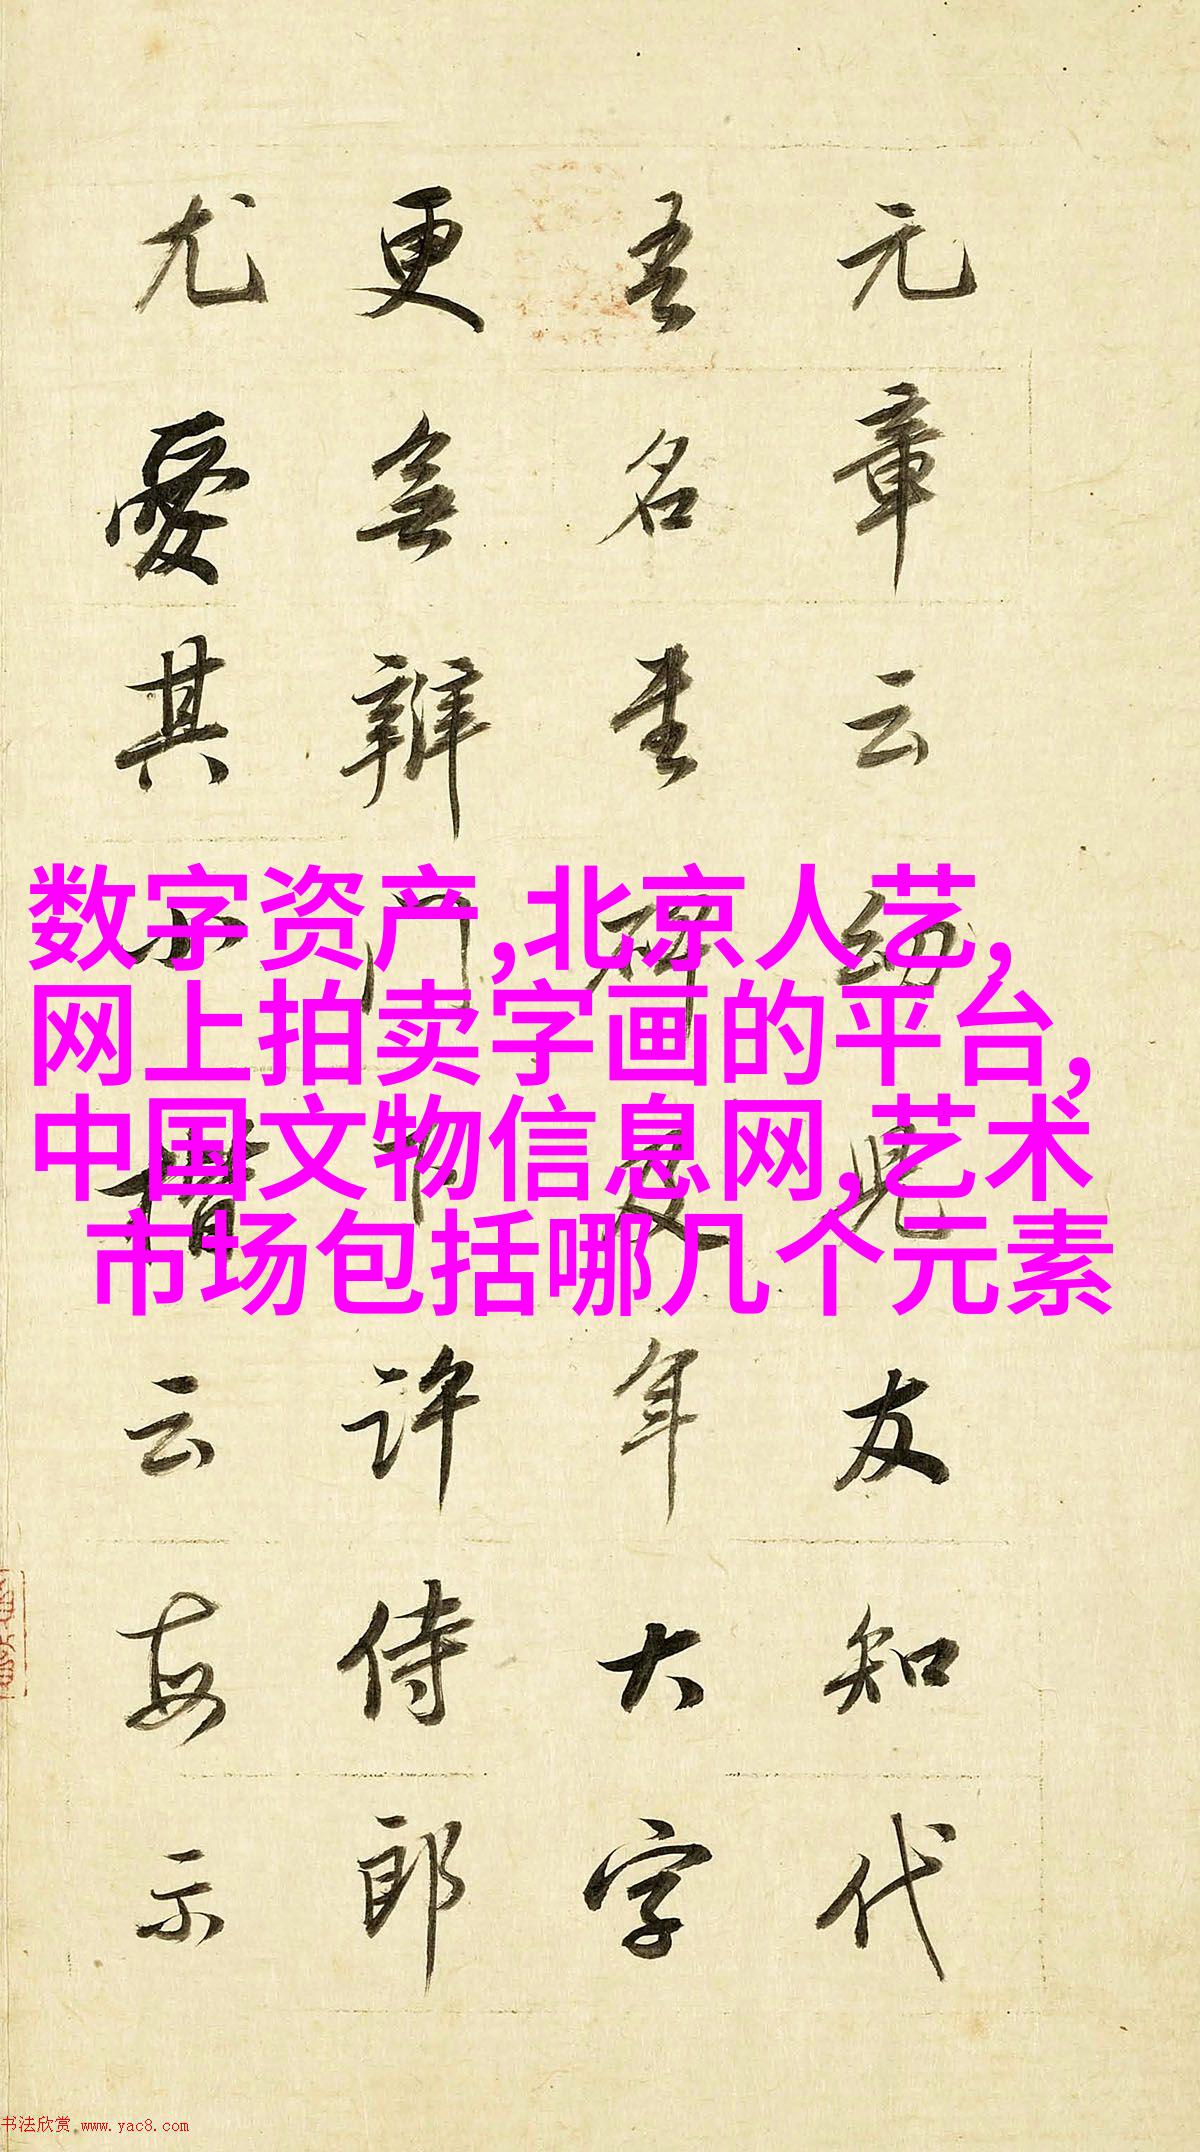 元章云幼兒友知代
吾名書碑及年大字
更無辨門下許侍郎
尤愛其小楷云每示
数字资产,北京人艺,
网上拍卖字画的平台,
中国文物信息网,艺术
市场包括哪几个元素
书法欣赏.www.yac8.com